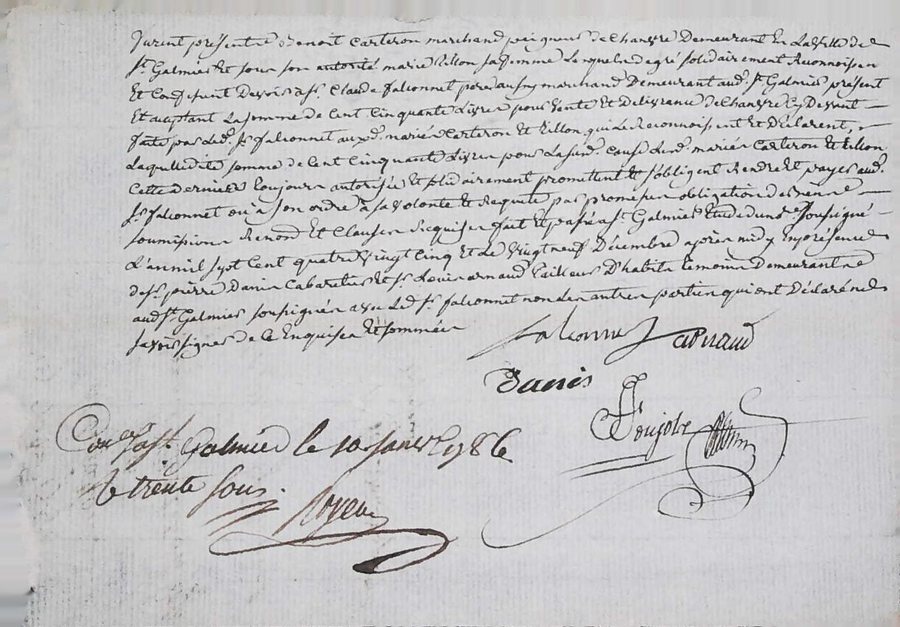 furent présents Benoit Carteron marchand peigneur de Chanvre Demeurant En La ville de
St. Galmier Et sous son autorité marie Rillon sa femme Lesquels de gré solidairement Reconnoissent
Et Confessent Devoir a sr. Claude falconnet marchand Demeurant aud. St. Galmier présent
Et acceptant La somme de Cent Cinquante Livres pour vente Et Delivrance de Chanvre Cy Devant
faite par Led. Sr. falconnet auxd. mariés Carteron et Rillon qui Le Reconnoissent Et Declarent,
Laquelle dite somme de Cent Cinquante Livres pour La susd. Cause Lesd. mariés Carteron Et Rillon
Cette derniere toujours autorisée Et solidairement promettent Et s'obligent Rendre Et payer aud.
Sr. falconnet ou à son ordre à sa volonté Et Requete par promesse obligation
soumissions Renond. Et Clauses Requises fait Et passé a St. Galmier Etude du soussigné
L'an mil sept Cent quatre vingt Cinq Et Le vingt neuf Décembre après midy En présence
de sr. pierre Danis Cabaretier Et sr. Louis arnaud tailleur D'habits temoins Demeurant
aud. St. Galmier soussignés avec Led. Sr. falconnet non Les autres parties qui ont Déclaré ne
savoir signer de ce Enquises Et sommées
falconnet arnaud
Danis
Con. a St. Galmier le 10 janvr. 1786
R trente sous.